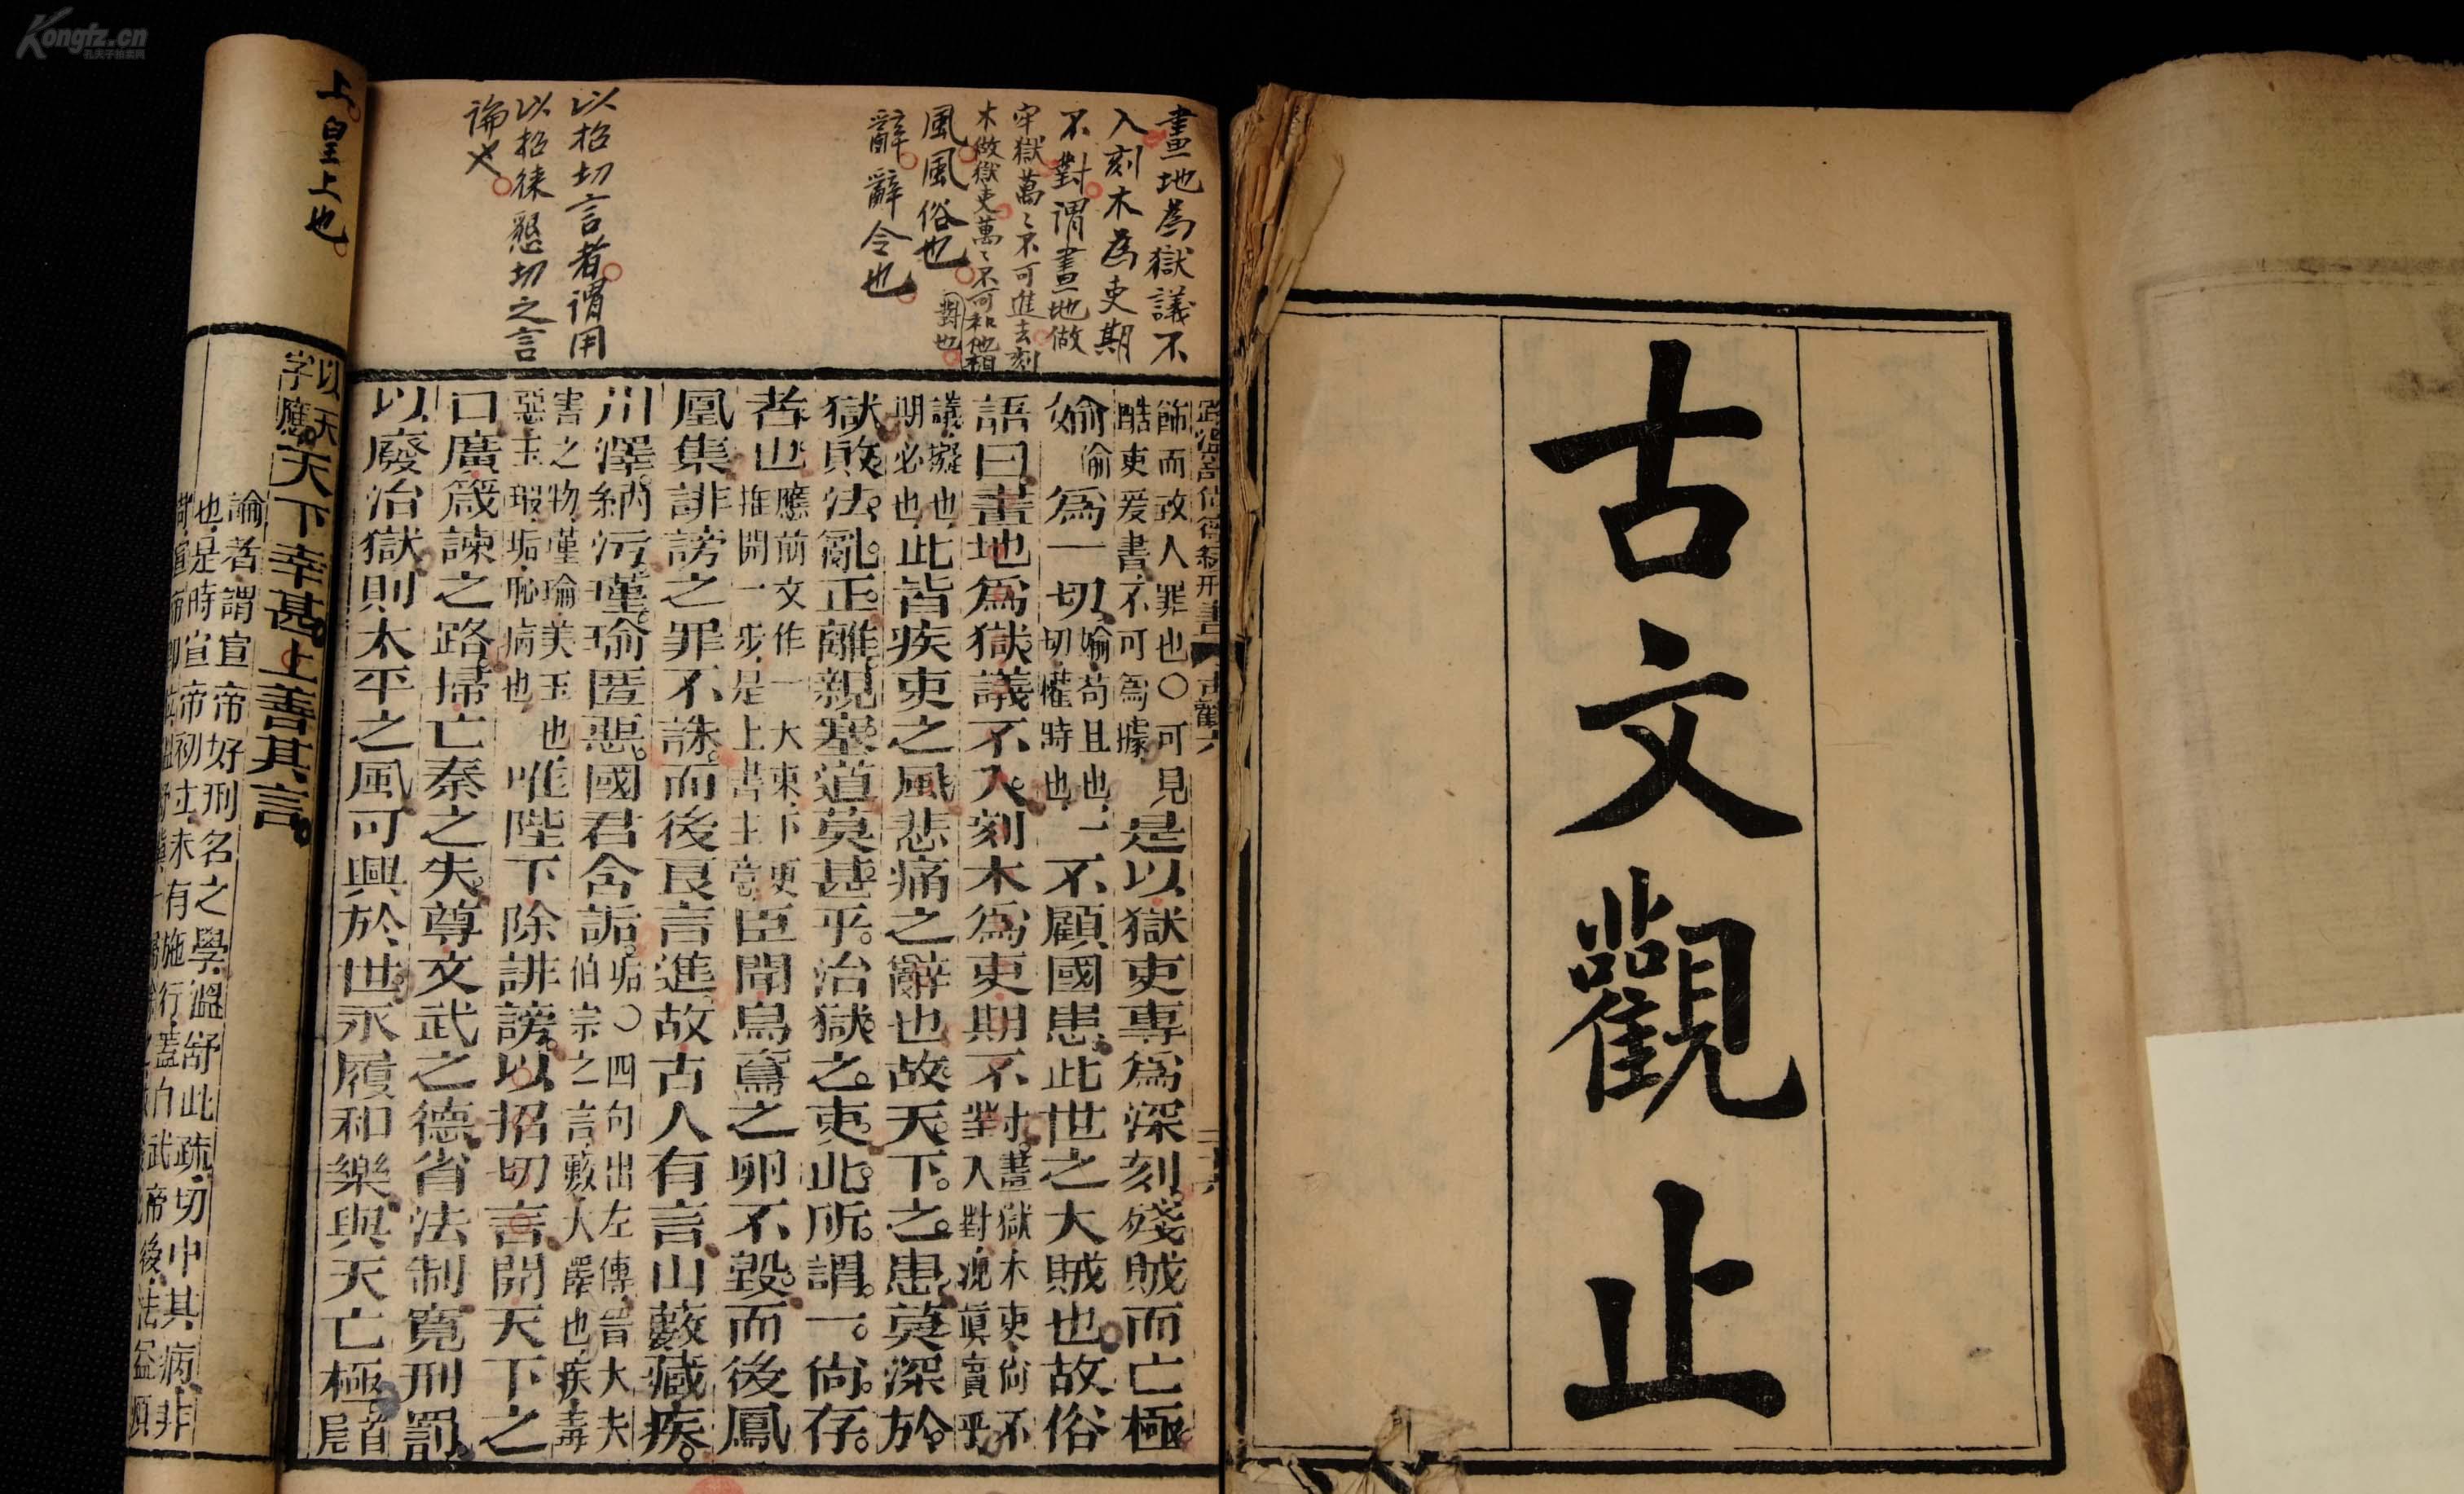 Kongfz.cn
孔夫子拍卖网
古文觀止
畫地為獄議不
入刻木為吏期
不對謂畫地做
牢獄萬〻不可進去刻
木做獄吏萬〻不可和他相
對也
風風俗也
辭辭令也
以招切言者謂用
以招徠懇切之言
論也
上皇上也
飾而致人罪也〇可見
酷吏爰書不可爲據
是以獄吏專爲深刻殘賊而亡極
媮偷爲一切
媮苟且也一
切權時也
不顧國患此世之大賊也故俗
語曰畫地爲獄議不入刻木爲吏期不對
畫獄木吏尙不
入對況眞實乎
議擬也
期必也
此皆疾吏之風悲痛之辭也故天下之患莫深於
獄敗法亂正離親塞道莫甚乎治獄之吏此所謂一尙存
者也
應前文作一大束下更
推開一步是上書主意
臣聞烏鳶之卵不毀而後鳳
凰集誹謗之罪不誅而後良言進故古人有言山藪藏疾
川澤納污瑾瑜匿惡國君含詬
垢〇四句出左傳晉大夫
伯宗之言藪大澤也疾毒
害之物瑾瑜美玉也
惡玉瑕垢恥病也
唯陛下除誹謗以招切言開天下之
口廣箴諫之路掃亡秦之失尊文武之德省法制寬刑罰
以廢治獄則太平之風可興於世永履和樂與天亡極
首
尾
以天
字應
天下幸甚上善其言
論者謂宣帝好刑名之學溫舒此疏切中其病非
也是時宣帝初立未有施行蓋自武帝後法益煩